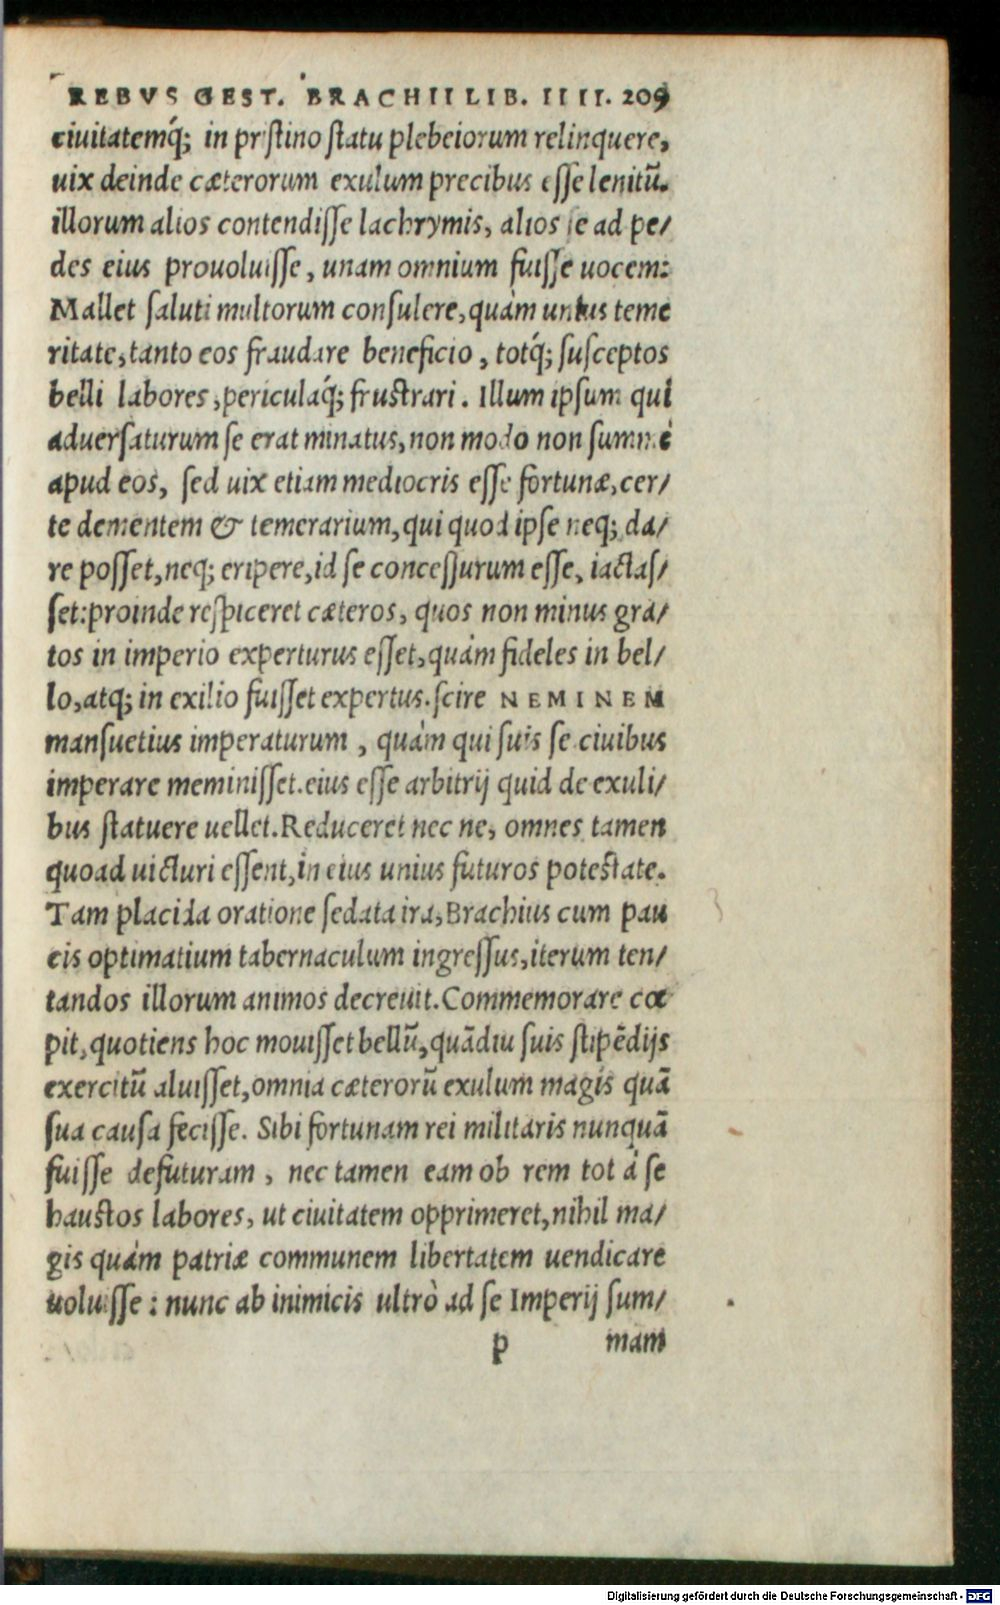 REBVS GEST. BRACHII LIB. IIII. 209
ciuitatemq́; in pristino statu plebeiorum relinquere,
uix deinde cæterorum exulum precibus esse lenitū.
illorum alios contendisse lachrymis, alios se ad pe/
des eius prouoluisse, unam omnium fuisse uocem:
Mallet saluti multorum consulere, quàm unius teme
ritate, tanto eos fraudare beneficio, totq́; susceptos
belli labores, periculaq́; frustrari. Illum ipsum qui
aduersaturum se erat minatus, non modo non summè
apud eos, sed uix etiam mediocris esse fortunæ, cer/
te dementem & temerarium, qui quod ipse neq; da/
re posset, neq; eripere, id se concessurum esse, iactas/
set: proinde respiceret cæteros, quos non minus gra/
tos in imperio experturus esset, quàm fideles in bel/
lo, atq; in exilio fuisset expertus. scire NEMINEM
mansuetius imperaturum, quàm qui suis se ciuibus
imperare meminisset. eius esse arbitrij quid de exuli/
bus statuere uellet. Reduceret nec ne, omnes tamen
quoad uicturi essent, in eius unius futuros potestate.
Tam placida oratione sedata ira, Brachius cum pau
cis optimatium tabernaculum ingressus, iterum ten/
tandos illorum animos decreuit. Commemorare cœ
pit, quotiens hoc mouisset bellū, quādiu suis stipēdijs
exercitū aluisset, omnia cæterorū exulum magis quā
sua causa fecisse. Sibi fortunam rei militaris nunquā
fuisse defuturam, nec tamen eam ob rem tot à se
haustos labores, ut ciuitatem opprimeret, nihil ma/
gis quàm patriæ communem libertatem uendicare
uoluisse: nunc ab inimicis ultrò ad se Imperij sum/
p mam
Digitalisierung gefördert durch die Deutsche Forschungsgemeinschaft - DFG